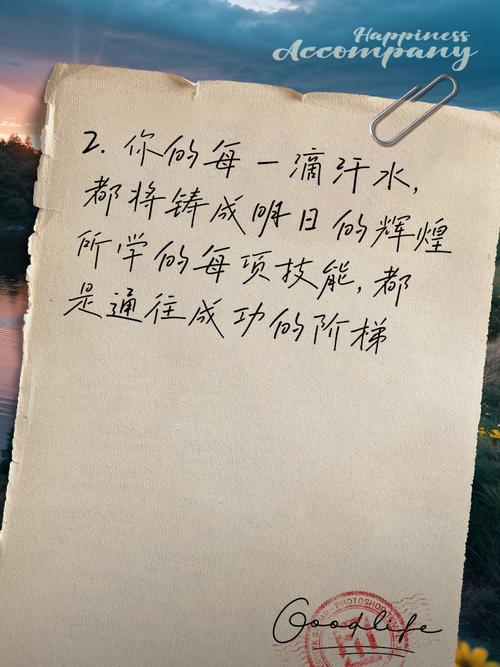 Happiness
Accompany
2. 你的每一滴汗水,
都将铸成明日的辉煌
所学的每项技能,都
是通往成功的阶梯
PHOTOSHOP
Goodlife